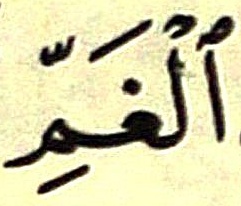 ٱلْغَمِّ